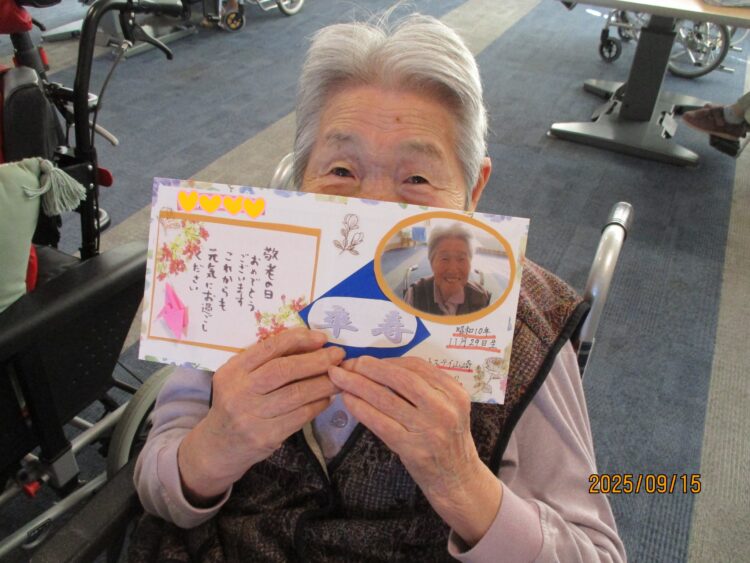 敬老の日
おめでとう
ございます
これからも
元気にお過ごし
ください
卒寿
昭和10年
11月29日生
2025/09/15